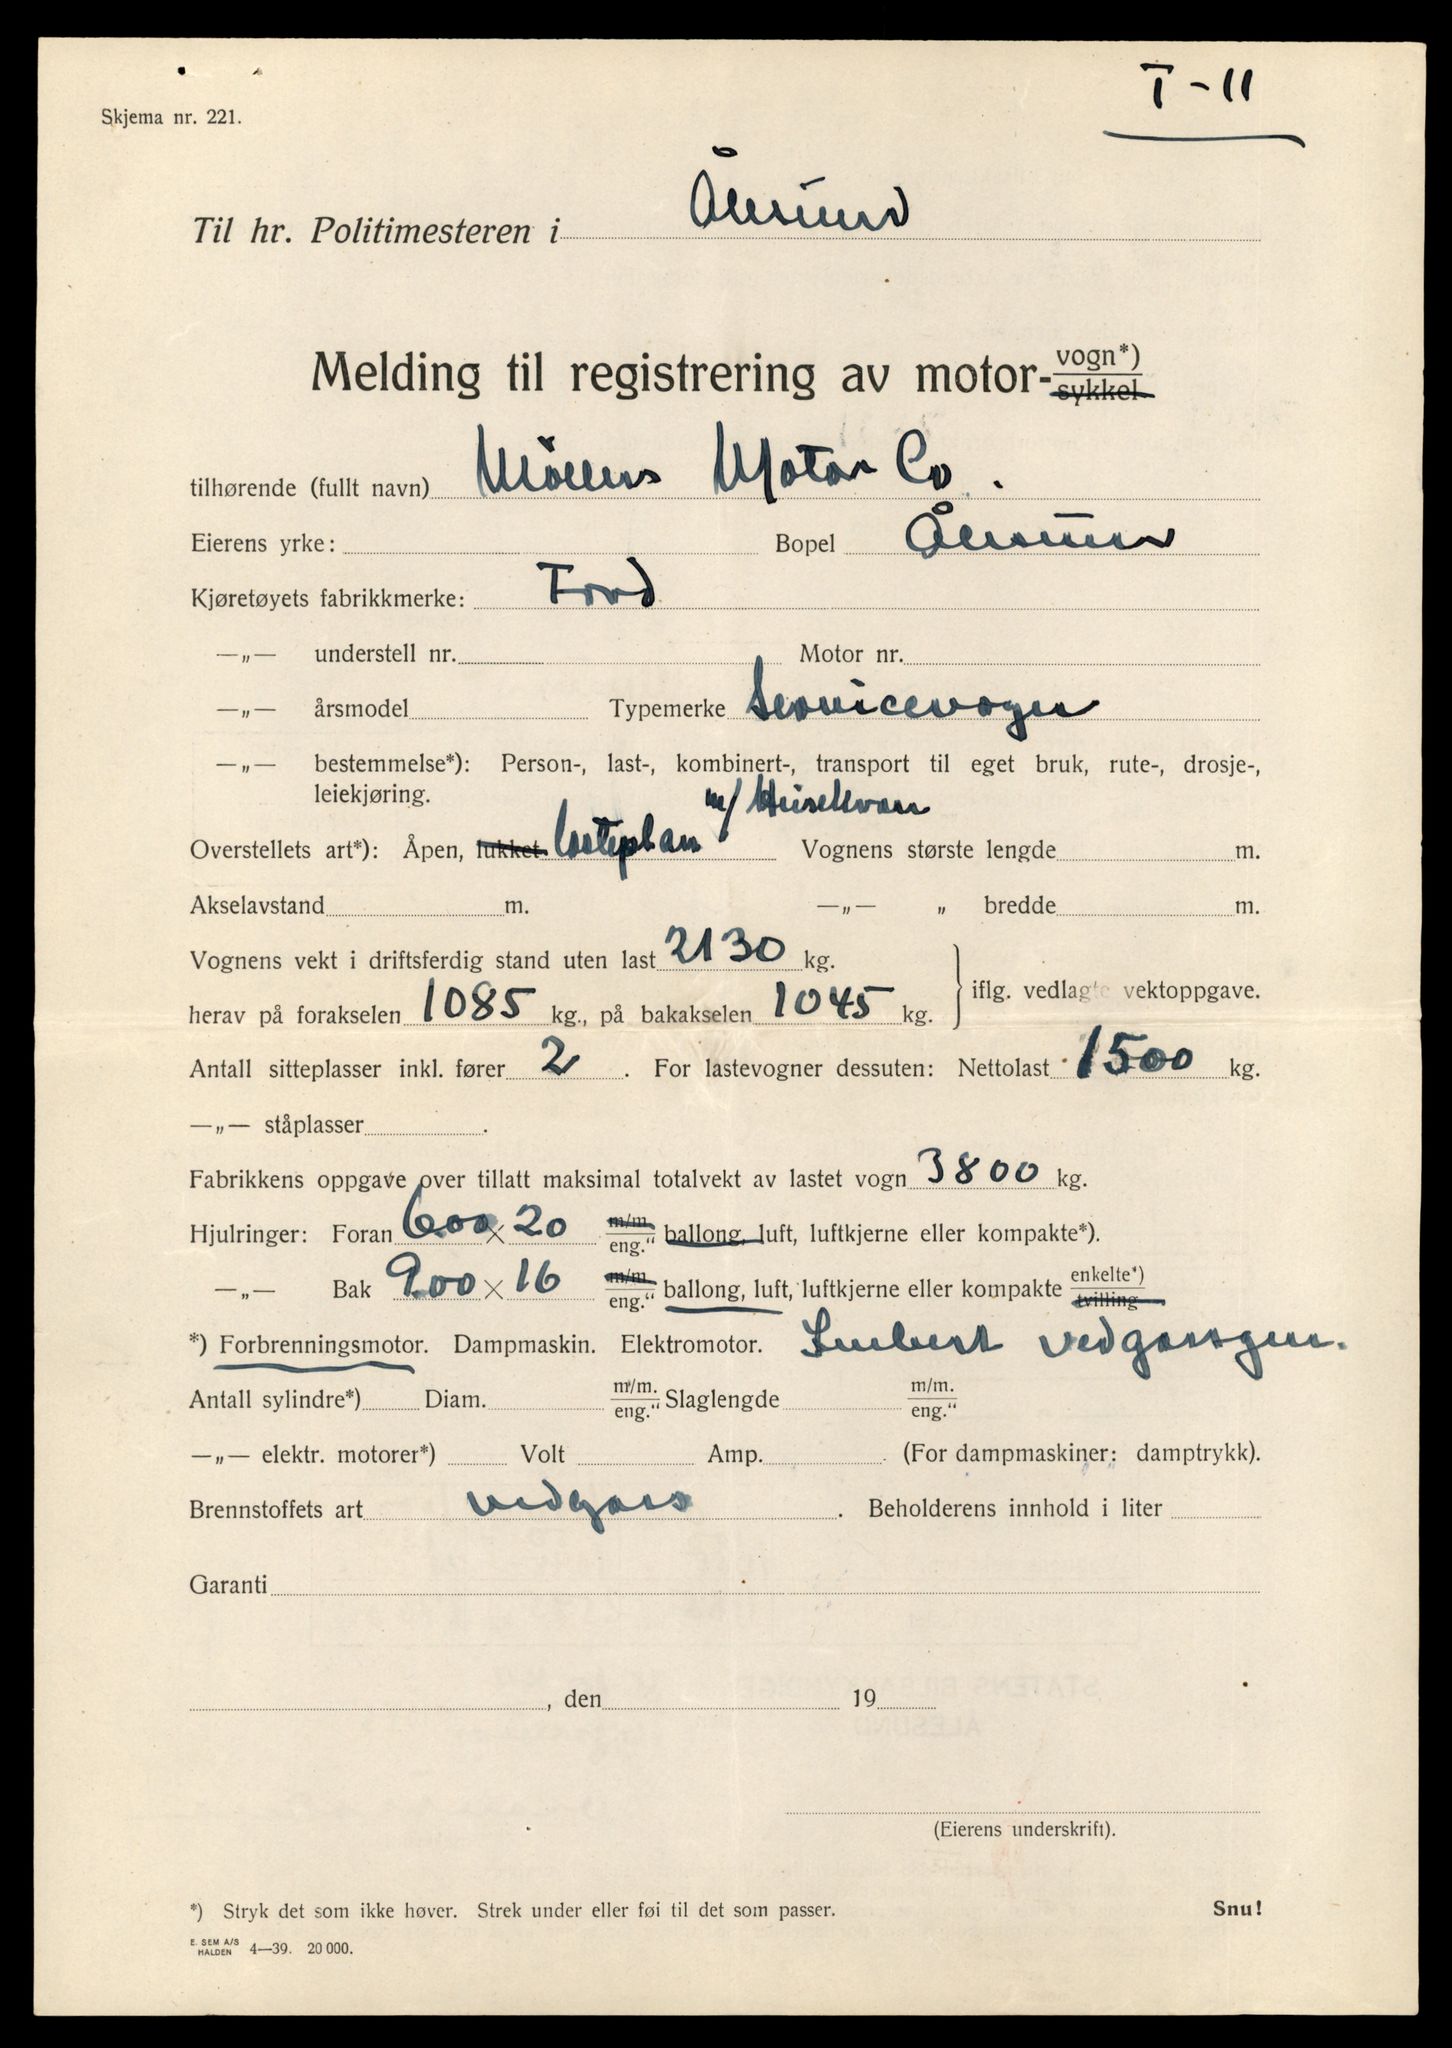 T - 11
Skjema nr. 221.
Til hr. Politimesteren i Ålesund
Melding til registrering av motor- vogn*) sykkel
tilhørende (fullt navn) Möllers Motor Co.
Eierens yrke: Bopel Ålesund
Kjøretøyets fabrikkmerke: Ford
—„— understell nr. Motor nr.
—„— årsmodel Typemerke Servicevogn
—„— bestemmelse*): Person-, last-, kombinert-, transport til eget bruk, rute-, drosje-,
leiekjøring.
m/
Overstellets art*): Åpen, lukket Lasteplan Vognens største lengde m.
Akselavstand m. —„— „ bredde m.
Vognens vekt i driftsferdig stand uten last 2130 kg.
herav på forakselen 1085 kg., på bakakselen 1045 kg. iflg. vedlagte vektoppgave.
Antall sitteplasser inkl. fører 2. For lastevogner dessuten: Nettolast 1500 kg.
—„— ståplasser .
Fabrikkens oppgave over tillatt maksimal totalvekt av lastet vogn 3800 kg.
Hjulringer: Foran 600 × 20 m/m eng.“ ballong, luft, luftkjerne eller kompakte*).
—„— Bak 9.00 × 16 m/m eng.“ ballong, luft, luftkjerne eller kompakte enkelte*) tvilling
*) Forbrenningsmotor. Dampmaskin. Elektromotor. Imbert vedgassgen.
Antall sylindre*) Diam. m/m. eng.“ Slaglengde m/m. eng.“
—„— elektr. motorer*) Volt Amp. (For dampmaskiner: damptrykk).
Brennstoffets art vedgass . Beholderens innhold i liter
Garanti
, den 19
(Eierens underskrift).
*) Stryk det som ikke høver. Strek under eller føi til det som passer. Snu!
E. SEM A/S HALDEN 4—39. 20 000.